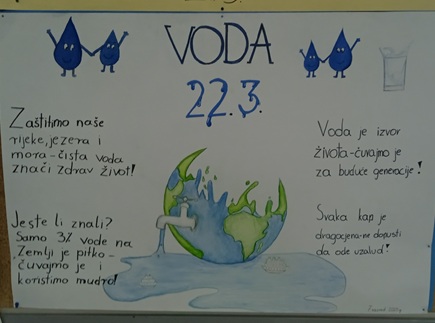 VODA
22.3.
Zaštitimo naše
rijeke, jezera i
mora-čista voda
znači zdrav život!
Jeste li znali?
Samo 3% vode na
Zemlji je pitko-
čuvajmo je i
koristimo mudro!
Voda je izvor
života-čuvajmo je
za buduće generacije!
Svaka kap je
dragocjena-ne dopusti
da ode uzalud!